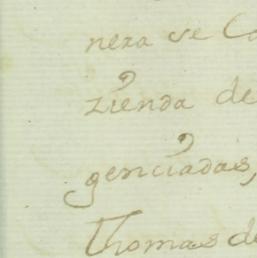 nera se Ca
zienda de
genciadas,
Thomas de